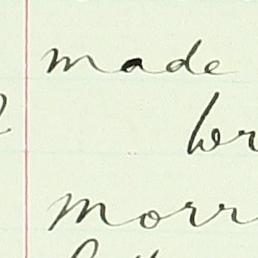 made
her
morr